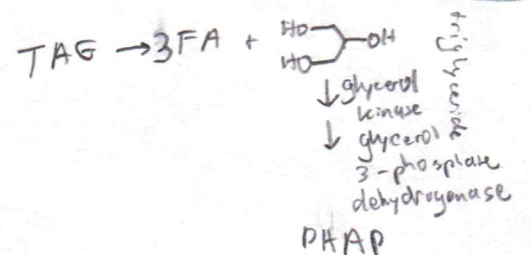 TAG → 3 FA + HO OH HO
↓ glycerol
kinase
↓ glycerol
3-phosphate
dehydrogenase
DHAP